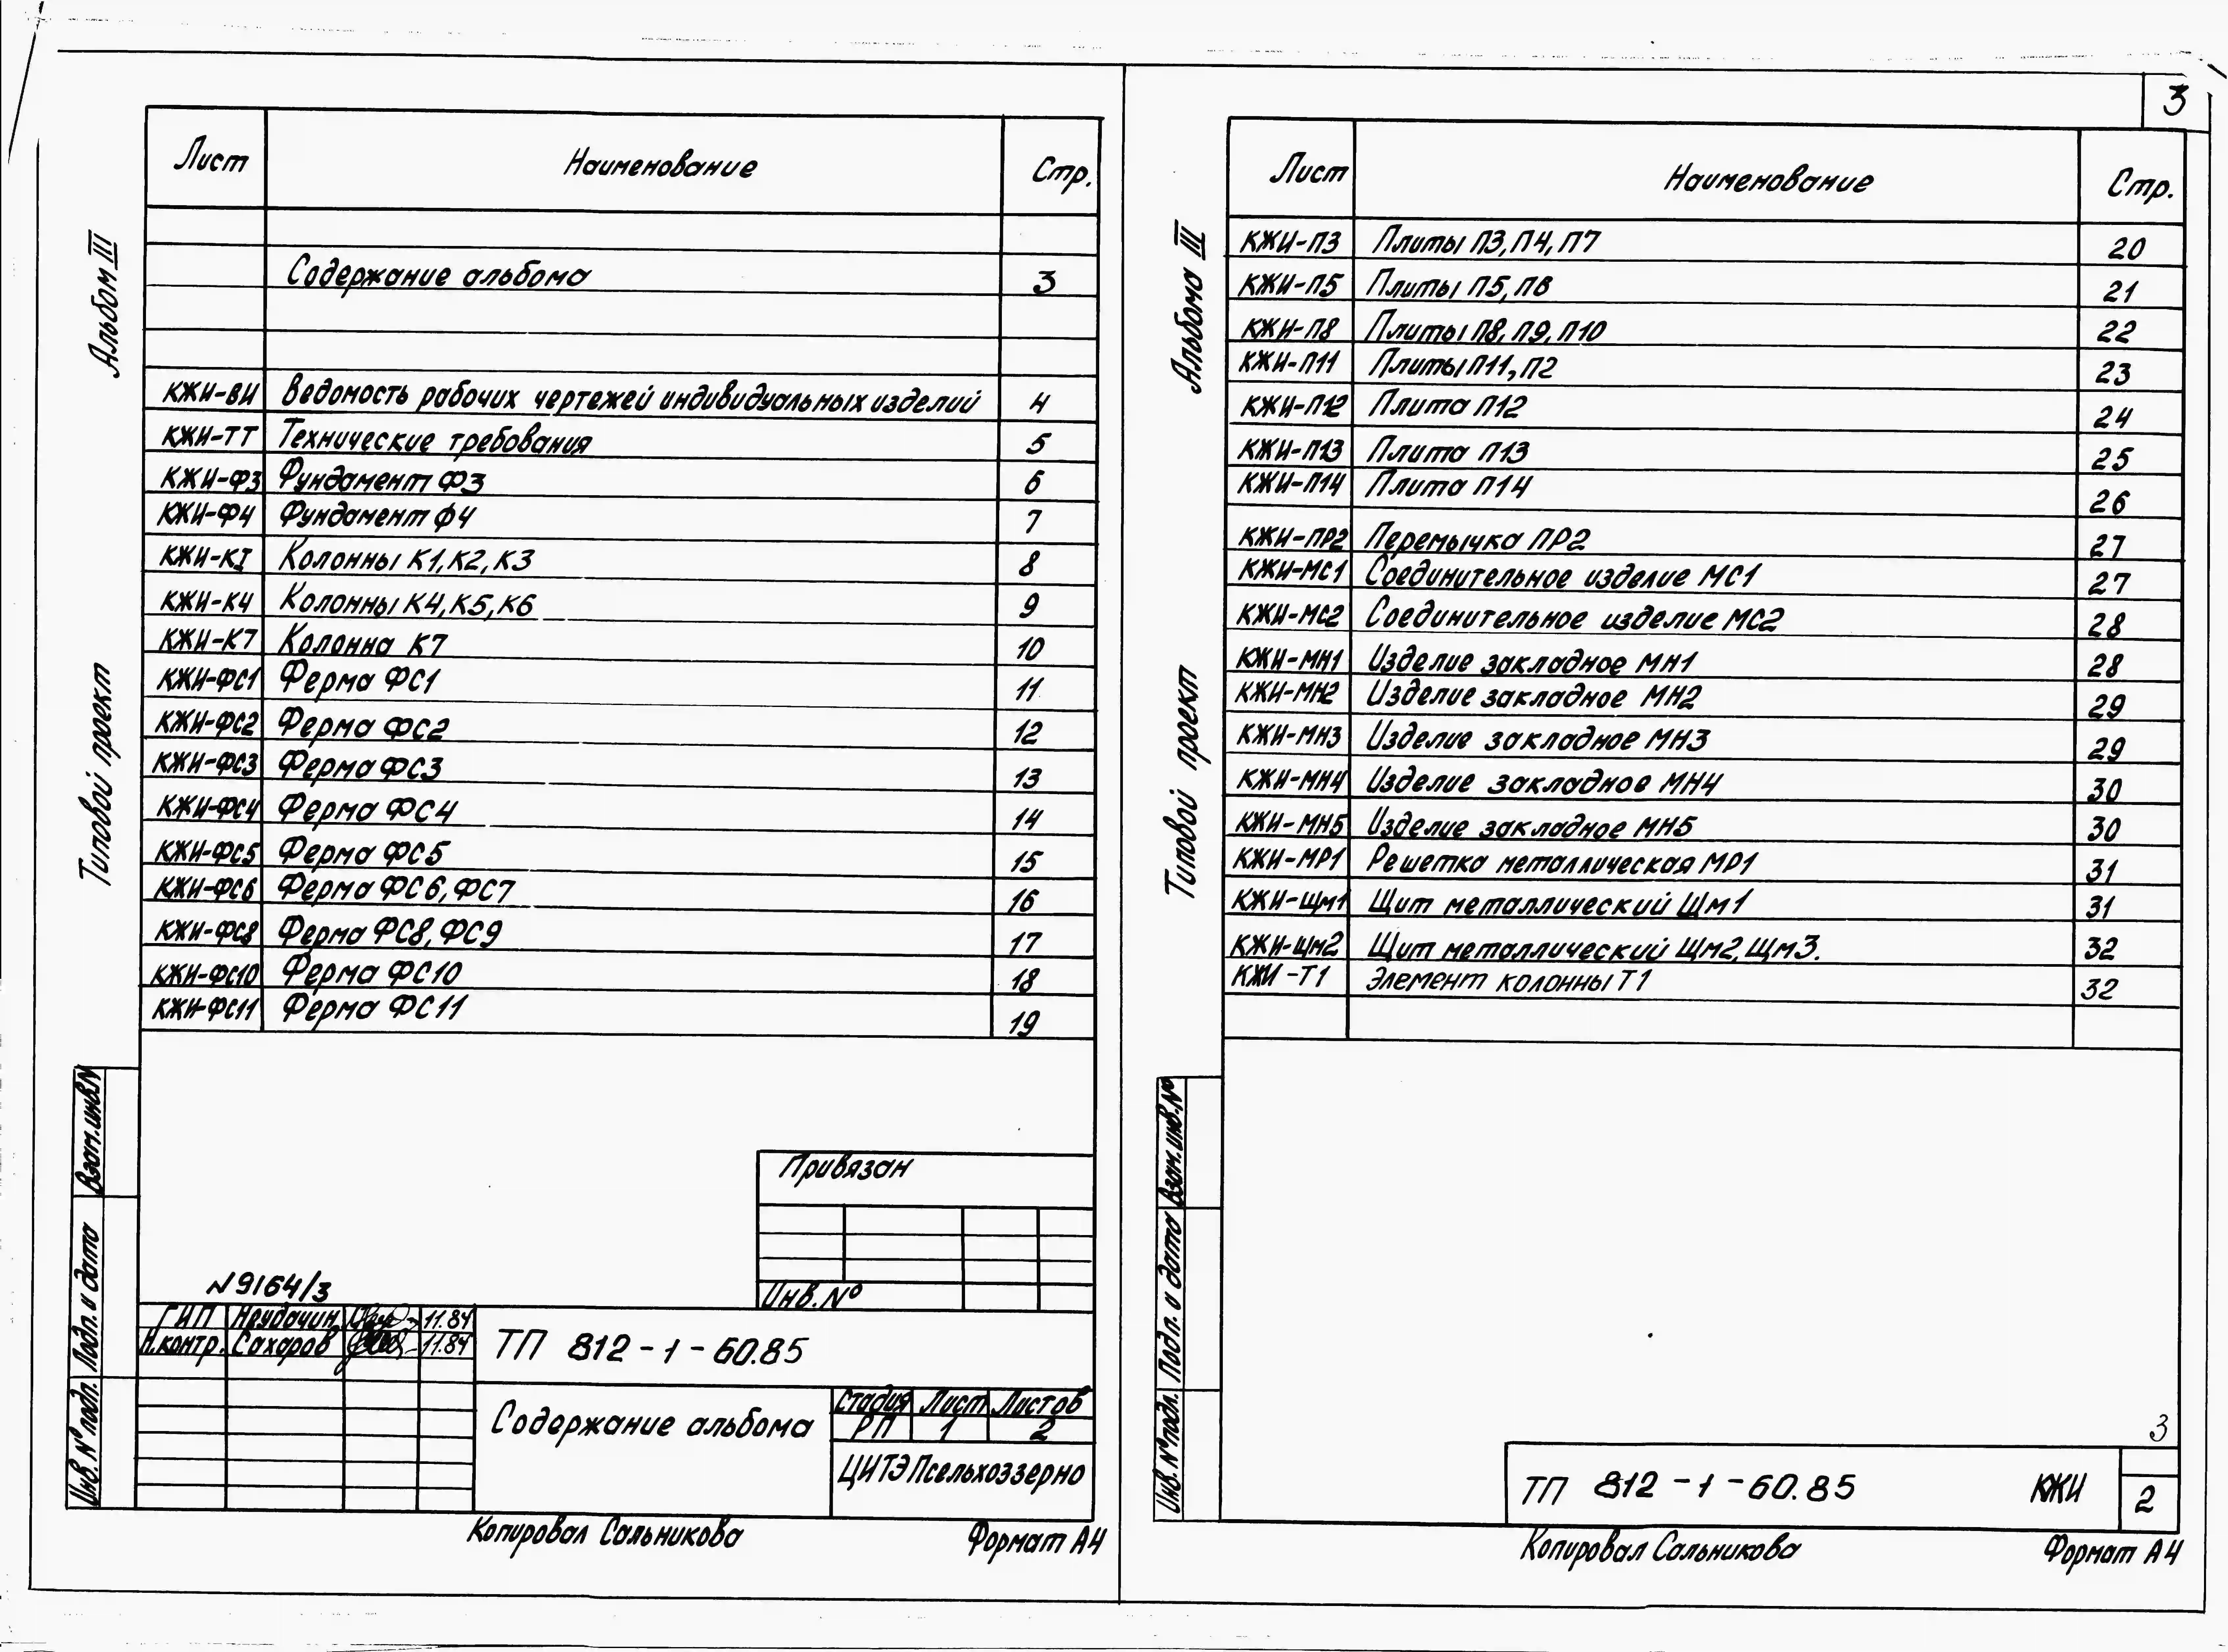 3
Альбом III
Типовой проект
Лист Наименование Стр.
Содержание альбома 3
КЖИ-ВИ Ведомость рабочих чертежей индивидуальных изделий 4
КЖИ-ТТ Технические требования 5
КЖИ-Ф3 Фундамент Ф3 6
КЖИ-Ф4 Фундамент Ф4 7
КЖИ-КI Колонны К1, К2, К3 8
КЖИ-К4 Колонны К4, К5, К6 9
КЖИ-К7 Колонна К7 10
КЖИ-ФС1 Ферма ФС1 11
КЖИ-ФС2 Ферма ФС2 12
КЖИ-ФС3 Ферма ФС3 13
КЖИ-ФС4 Ферма ФС4 14
КЖИ-ФС5 Ферма ФС5 15
КЖИ-ФС6 Ферма ФС6, ФС7 16
КЖИ-ФС8 Ферма ФС8, ФС9 17
КЖИ-ФС10 Ферма ФС10 18
КЖИ-ФС11 Ферма ФС11 19
Взам.инв.N
Подп. и дата
Инв. № подл.
Привязан
Инв. №
N9164/3
ГИП Неудачин 11.84
Н.контр. Сахаров 11.84
ТП 812-1-60.85
Содержание альбома
Стадия Лист Листов
РП 1 2
ЦИТЭПсельхоззерно
Копировал Сальникова Формат А4
Альбома III
Типовой проект
Лист Наименование Стр.
КЖИ-П3 Плиты П3, П4, П7 20
КЖИ-П5 Плиты П5, П6 21
КЖИ-П8 Плиты П8, П9, П10 22
КЖИ-П11 Плиты П11, П2 23
КЖИ-П12 Плита П12 24
КЖИ-П13 Плита П13 25
КЖИ-П14 Плита П14 26
КЖИ-ПР2 Перемычка ПР2 27
КЖИ-МС1 Соединительное изделие МС1 27
КЖИ-МС2 Соединительное изделие МС2 28
КЖИ-МН1 Изделие закладное МН1 28
КЖИ-МН2 Изделие закладное МН2 29
КЖИ-МН3 Изделие закладное МН3 29
КЖИ-МН4 Изделие закладное МН4 30
КЖИ-МН5 Изделие закладное МН5 30
КЖИ-МР1 Решетка металлическая МР1 31
КЖИ-Щм1 Щит металлический Щм1 31
КЖИ-Щм2 Щит металлический Щм2, Щм3. 32
КЖИ-Т1 Элемент колонны Т1 32
Взам.инв.№
Подп. и дата
Инв. № подл.
3
ТП 812-1-60.85 КЖИ 2
Копировал Сальникова Формат А4